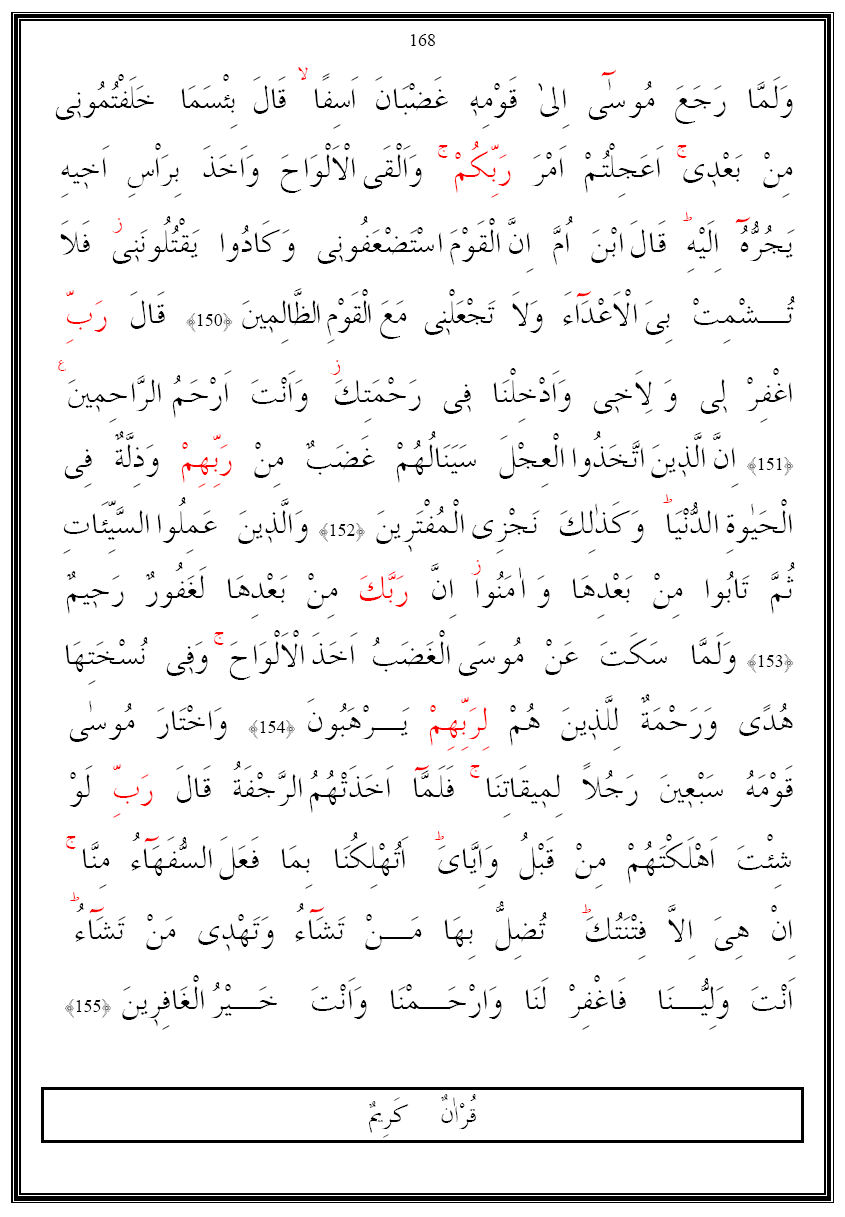 168
وَلَمَّا رَجَعَ مُوسٰٓى اِلٰى قَوْمِه۪ غَضْبَانَ اَسِفًا ۙ قَالَ بِئْسَمَا خَلَفْتُمُون۪ى
مِنْ بَعْد۪ى ۚ اَعَجِلْتُمْ اَمْرَ رَبِّكُمْ ۚ وَاَلْقَى الْاَلْوَاحَ وَاَخَذَ بِرَاْسِ اَخ۪يهِ
يَجُرُّهُٓ اِلَيْهِ ۜ قَالَ ابْنَ اُمَّ اِنَّ الْقَوْمَ اسْتَضْعَفُون۪ى وَكَادُوا يَقْتُلُونَن۪ى ۘ فَلَا
تُـــشْمِتْ بِىَ الْاَعْدَٓاءَ وَلَا تَجْعَلْن۪ى مَعَ الْقَوْمِ الظَّالِم۪ينَ ﴿150﴾ قَالَ رَبِّ
اغْفِرْ ل۪ى وَ لِاَخ۪ى وَاَدْخِلْنَا ف۪ى رَحْمَتِكَ ۘ وَاَنْتَ اَرْحَمُ الرَّاحِم۪ينَ ع
﴿151﴾ اِنَّ الَّذ۪ينَ اتَّخَذُوا الْعِجْلَ سَيَنَالُهُمْ غَضَبٌ مِنْ رَبِّهِمْ وَذِلَّةٌ فِى
الْحَيٰوةِ الدُّنْيَا ۜ وَكَذٰلِكَ نَجْزِى الْمُفْتَر۪ينَ ﴿152﴾ وَالَّذ۪ينَ عَمِلُوا السَّيِّئَاتِ
ثُمَّ تَابُوا مِنْ بَعْدِهَا وَ اٰمَنُوا ۘ اِنَّ رَبَّكَ مِنْ بَعْدِهَا لَغَفُورٌ رَح۪يمٌ
﴿153﴾ وَلَمَّا سَكَتَ عَنْ مُوسَى الْغَضَبُ اَخَذَ الْاَلْوَاحَ ۚ وَف۪ى نُسْخَتِهَا
هُدًى وَرَحْمَةٌ لِلَّذ۪ينَ هُمْ لِرَبِّهِمْ يَـــرْهَبُونَ ﴿154﴾ وَاخْتَارَ مُوسٰى
قَوْمَهُ سَبْع۪ينَ رَجُلًا لِم۪يقَاتِنَا ۚ فَلَمَّٓا اَخَذَتْهُمُ الرَّجْفَةُ قَالَ رَبِّ لَوْ
شِئْتَ اَهْلَكْتَهُمْ مِنْ قَبْلُ وَاِيَّاىَ ۜ اَتُهْلِكُنَا بِمَا فَعَلَ السُّفَهَٓاءُ مِنَّا ۚ
اِنْ هِىَ اِلَّا فِتْنَتُكَ ۜ تُضِلُّ بِهَا مَـــنْ تَشَٓاءُ وَتَهْد۪ى مَنْ تَشَٓاءُ ۜ
اَنْتَ وَلِيُّـــنَا فَاغْفِرْ لَنَا وَارْحَـــمْنَا وَاَنْتَ خَـــيْرُ الْغَافِر۪ينَ ﴿155﴾
قُرْاٰنٌ كَرِيمٌ